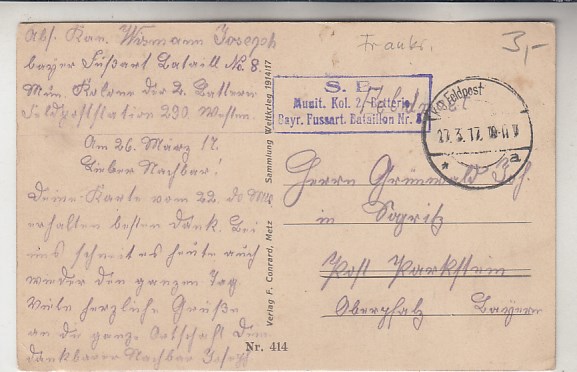 Abs. Kan. Wismann Joseph
bayer Fußart Bataill No. 8.
Mun. Kolone der 2. Batterie
Feldpoststation 290. Westen.
Am 26. März 17.
Lieber Nachbar!
Deine Karte vom 22. ds Mts
erhalten besten Dank. Bei
uns schneit es heute auch
wieder den ganzen Tag
Viele herzliche Grüße
an die ganze Ortschaft Dein
dankbarer Nachbar Joseph
Verlag F. Conrard, Metz Sammlung Weltkrieg 1914/17
Nr. 414
Frankr.
3,-
S. B.
Munit. Kol. 2. Batterie
Bayr. Fussart. Bataillon Nr. 8
Feldpost
27.3.17.
a
Herrn Grünwald Joh.
in
Post Parkstein
Oberpfalz Bayern